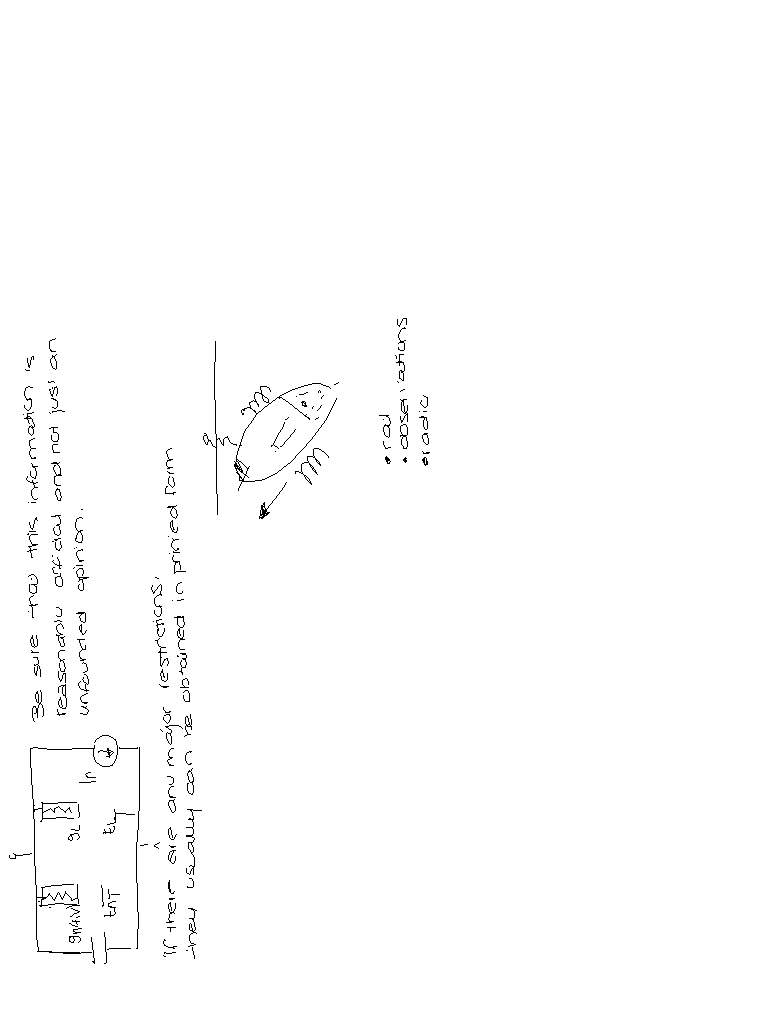 Be sure that this information is
reasonably official and not just an
unfounded opinion.
If their are any major restrictions,
they usually can be obtained in printed form
• rail
• observations
• radio
gL
In